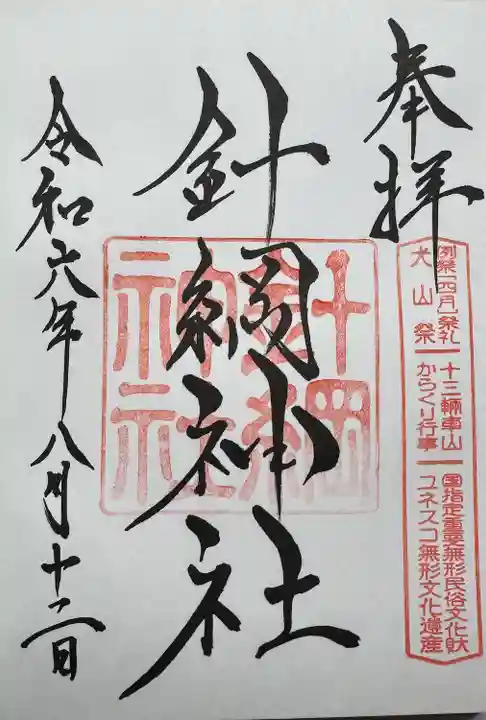 奉拝
例祭(四月)祭礼
犬山祭
十三輛車山
からくり行事
国指定重要無形民俗文化財
ユネスコ無形文化遺産
針綱神社
針綱神社
令和六年八月十二日